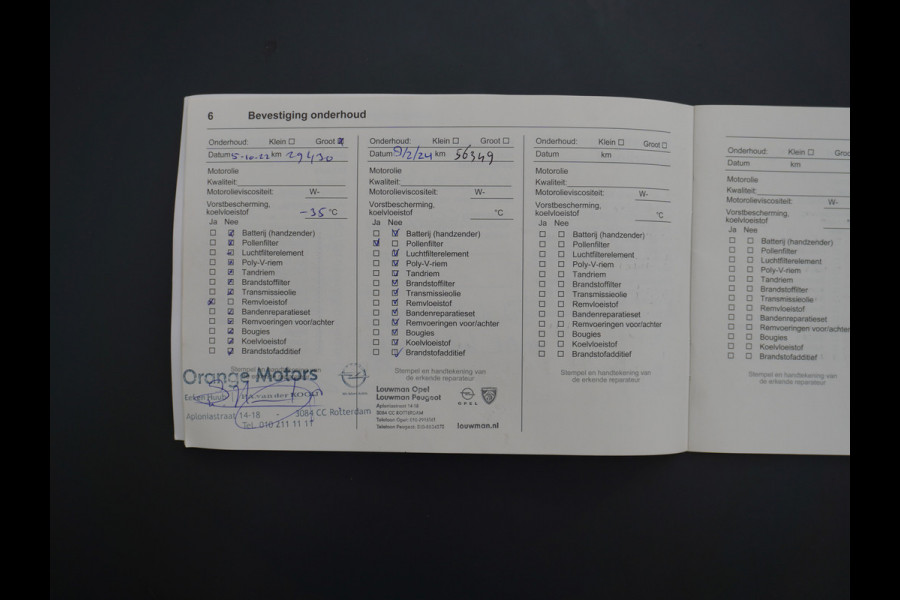 6 Bevestiging onderhoud
Onderhoud: Klein Groot
Datum 5-10-22 km 29430
Motorolie
Kwaliteit:
Motorolieviscositeit: W-
Vorstbescherming,
koelvloeistof -35 °C
Ja Nee
Batterij (handzender)
Pollenfilter
Luchtfilterelement
Poly-V-riem
Tandriem
Brandstoffilter
Transmissieolie
Remvloeistof
Bandenreparatieset
Remvoeringen voor/achter
Bougies
Koelvloeistof
Brandstofadditief
Orange Motors
Aploniastraat 14-18 3084 CC Rotterdam
Tel. 010 211 11 11
Onderhoud: Klein Groot
Datum 9/2/24 km 56349
Motorolie
Kwaliteit:
Motorolieviscositeit: W-
Vorstbescherming,
koelvloeistof °C
Ja Nee
Batterij (handzender)
Pollenfilter
Luchtfilterelement
Poly-V-riem
Tandriem
Brandstoffilter
Transmissieolie
Remvloeistof
Bandenreparatieset
Remvoeringen voor/achter
Bougies
Koelvloeistof
Brandstofadditief
Stempel en handtekening van
de erkende reparateur
Louwman Opel
Louwman Peugeot
Aploniastraat 14-18
3084 CC ROTTERDAM
OPEL
louwman.nl
Onderhoud: Klein Groot
Datum km
Motorolie
Kwaliteit:
Motorolieviscositeit: W-
Vorstbescherming,
koelvloeistof °C
Ja Nee
Batterij (handzender)
Pollenfilter
Luchtfilterelement
Poly-V-riem
Tandriem
Brandstoffilter
Transmissieolie
Remvloeistof
Bandenreparatieset
Remvoeringen voor/achter
Bougies
Koelvloeistof
Brandstofadditief
Stempel en handtekening van
de erkende reparateur
Onderhoud: Klein Groo
Datum km
Motorolie
Kwaliteit:
Motorolieviscositeit: W-
Vorstbescherming,
koelvloeistof
Ja Nee
Batterij (handzender)
Pollenfilter
Luchtfilterelement
Poly-V-riem
Tandriem
Brandstoffilter
Transmissieolie
Remvloeistof
Bandenreparatieset
Remvoeringen voor/achter
Bougies
Koelvloeistof
Brandstofadditief
Stempel en handtekening van
de erkende reparateur